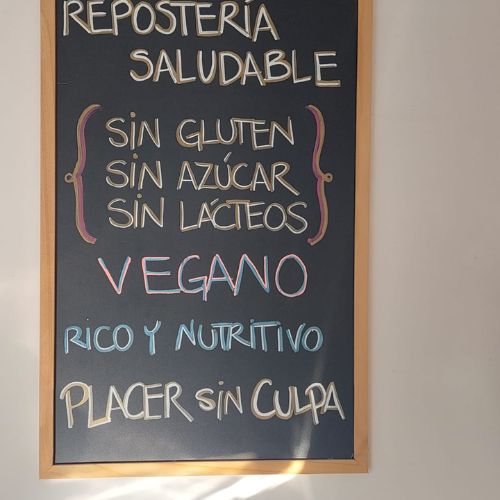 REPOSTERÍA
SALUDABLE
SIN GLUTEN
SIN AZÚCAR
SIN LÁCTEOS
VEGANO
RICO Y NUTRITIVO
PLACER SIN CULPA